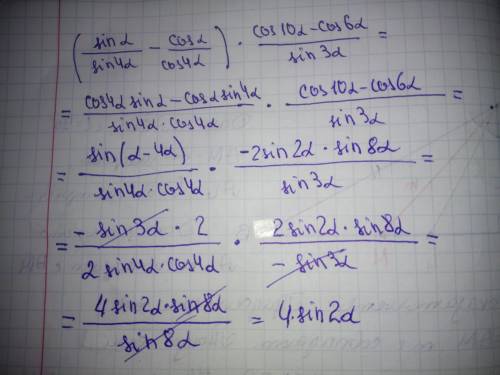 (sinα/sin4α − cosα/cos4α) · (cos10α − cos6α)/sin3α =
= (cos4α sinα − cosα sin4α)/(sin4α · cos4α) · (cos10α − cos6α)/sin3α =
= sin(α − 4α)/(sin4α · cos4α) · (−2sin2α · sin8α)/sin3α =
= (− sin3α · 2)/(2 sin4α · cos4α) · (2 sin2α · sin8α)/(− sin3α) =
= (4 sin2α · sin8α)/sin8α = 4 · sin2α